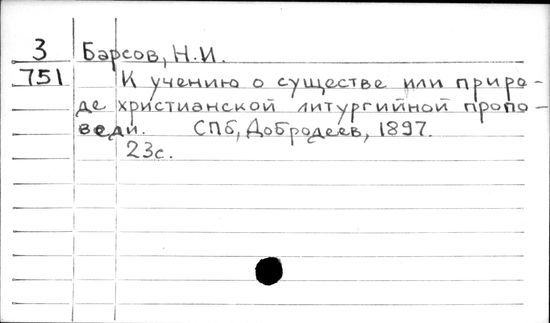 3 Барсов, Н.И.
751 К учению о существе или приро-
де христианской литургийной пропо-
веди. СПб, Добродеев, 1897.
23с.